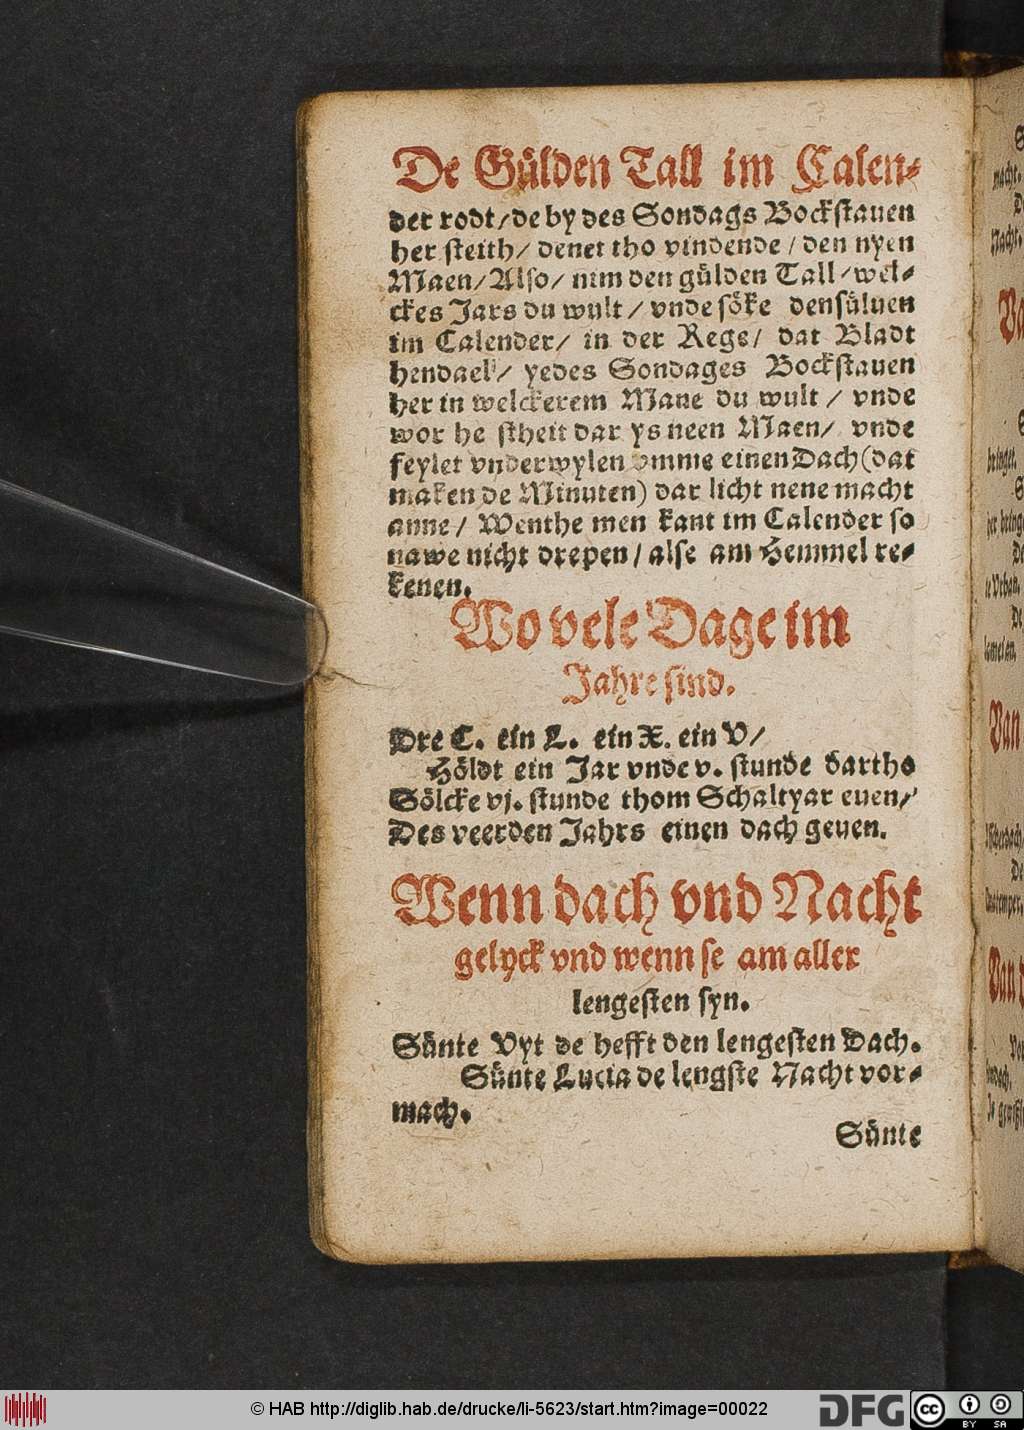 De Gülden Tall im Calen-
der rodt / de by des Sondags Bockstauen
her steith / denet tho vindende / den nyen
Maen / Also / nim den gülden Tall / wel-
ckes Jars du wult / vnde söke densüluen
im Calender / in der Rege / dat Bladt
hendael / yedes Sondages Bockstauen
her in welckerem Mane du wult / vnde
wor he stheit dar ys neen Maen / vnde
feylet vnderwylen vmme einen Dach (dat
maken de Minuten) dar licht nene macht
anne / Wenthe men kant im Calender so
nawe nicht drepen / alse am Hemmel re-
kenen.
Wo vele Dage im
Jahre sind.
Dre C. ein L. ein X. ein V /
Höldt ein Jar vnde v. stunde dartho
Sölcke vj. stunde thom Schaltyar euen /
Des veerden Jahrs einen dach geuen.
Wenn dach vnd Nacht
gelyck vnd wenn se am aller
lengesten syn.
Sünte Vyt de hefft den lengesten Dach.
Sünte Lucia de lengste Nacht vor-
mach.
Sünte
© HAB http://diglib.hab.de/drucke/li-5623/start.htm?image=00022
DFG
cc
BY SA